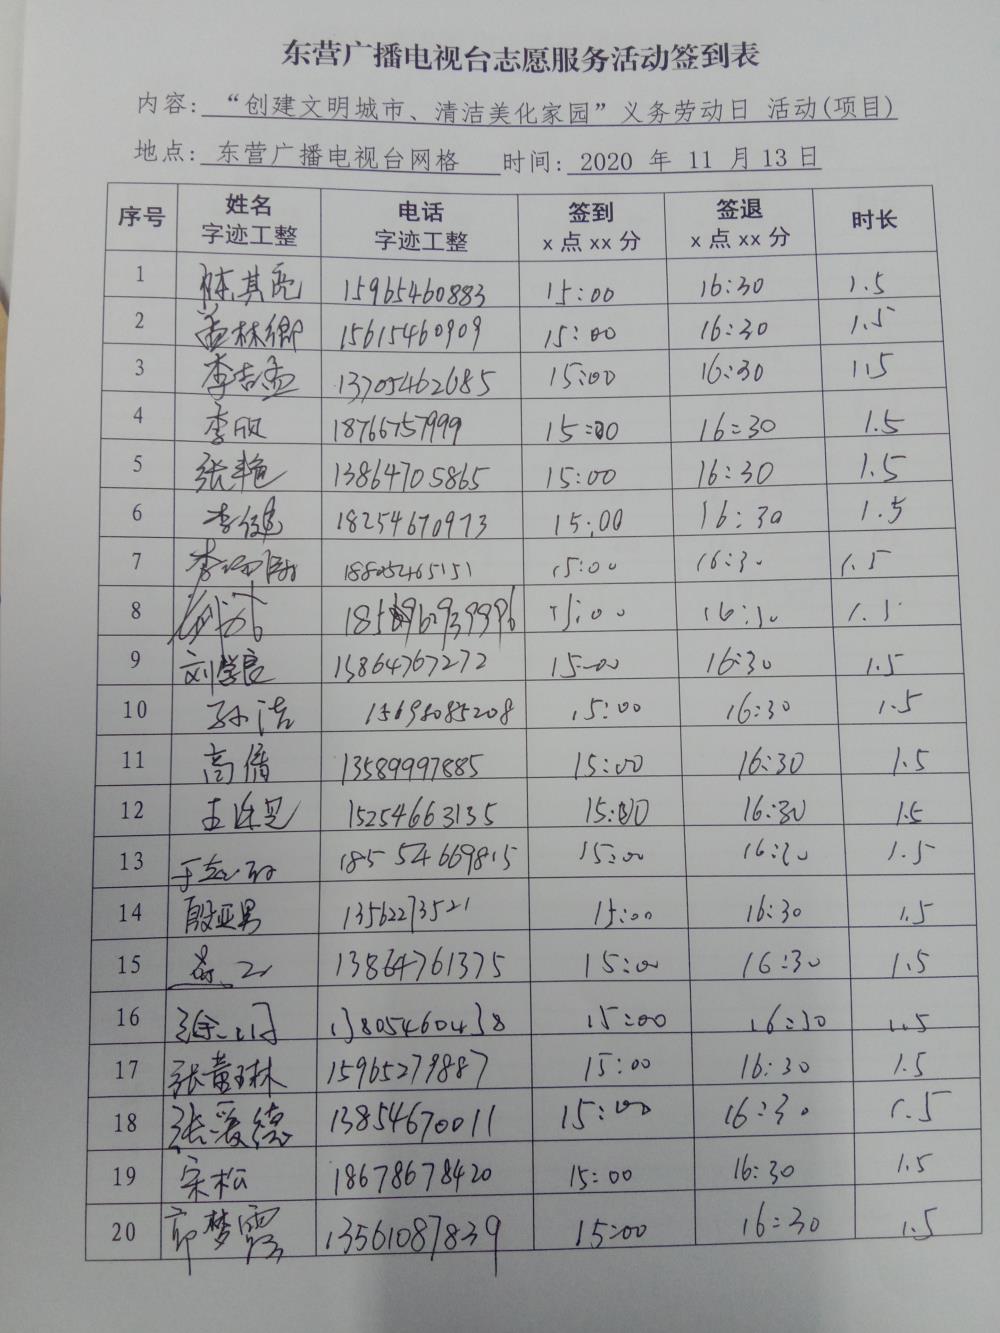 东营广播电视台志愿服务活动签到表
内容: “创建文明城市、清洁美化家园”义务劳动日 活动(项目)
地点: 东营广播电视台网格 时间: 2020 年 11 月 13 日
序号 姓名 电话 签到 签退 时长
字迹工整 字迹工整 x 点 xx 分 x 点 xx 分
1 陈其亮 15965460883 15:00 16:30 1.5
2 盖林卿 15615460909 15:00 16:30 1.5
3 李吉孟 13705462685 15:00 16:30 1.5
4 李欣 18766757999 15:00 16:30 1.5
5 张艳 13864705865 15:00 16:30 1.5
6 李健 18254670973 15:00 16:30 1.5
7 18805465151 15:00 16:30 1.5
8 15:00 16:30 1.5
9 刘学良 13864767272 15:00 16:30 1.5
10 孙洁 15698085208 15:00 16:30 1.5
11 高倩 13589997885 15:00 16:30 1.5
12 15254663135 15:00 16:30 1.5
13 18554669815 15:00 16:30 1.5
14 殷亚男 13562273521 15:00 16:30 1.5
15 13864761375 15:00 16:30 1.5
16 13805460438 15:00 16:30 1.5
17 张黄琳 15965279887 15:00 16:30 1.5
18 张爱德 13854670011 15:00 16:30 1.5
19 宋松 18678678420 15:00 16:30 1.5
20 郭梦霞 13561087839 15:00 16:30 1.5